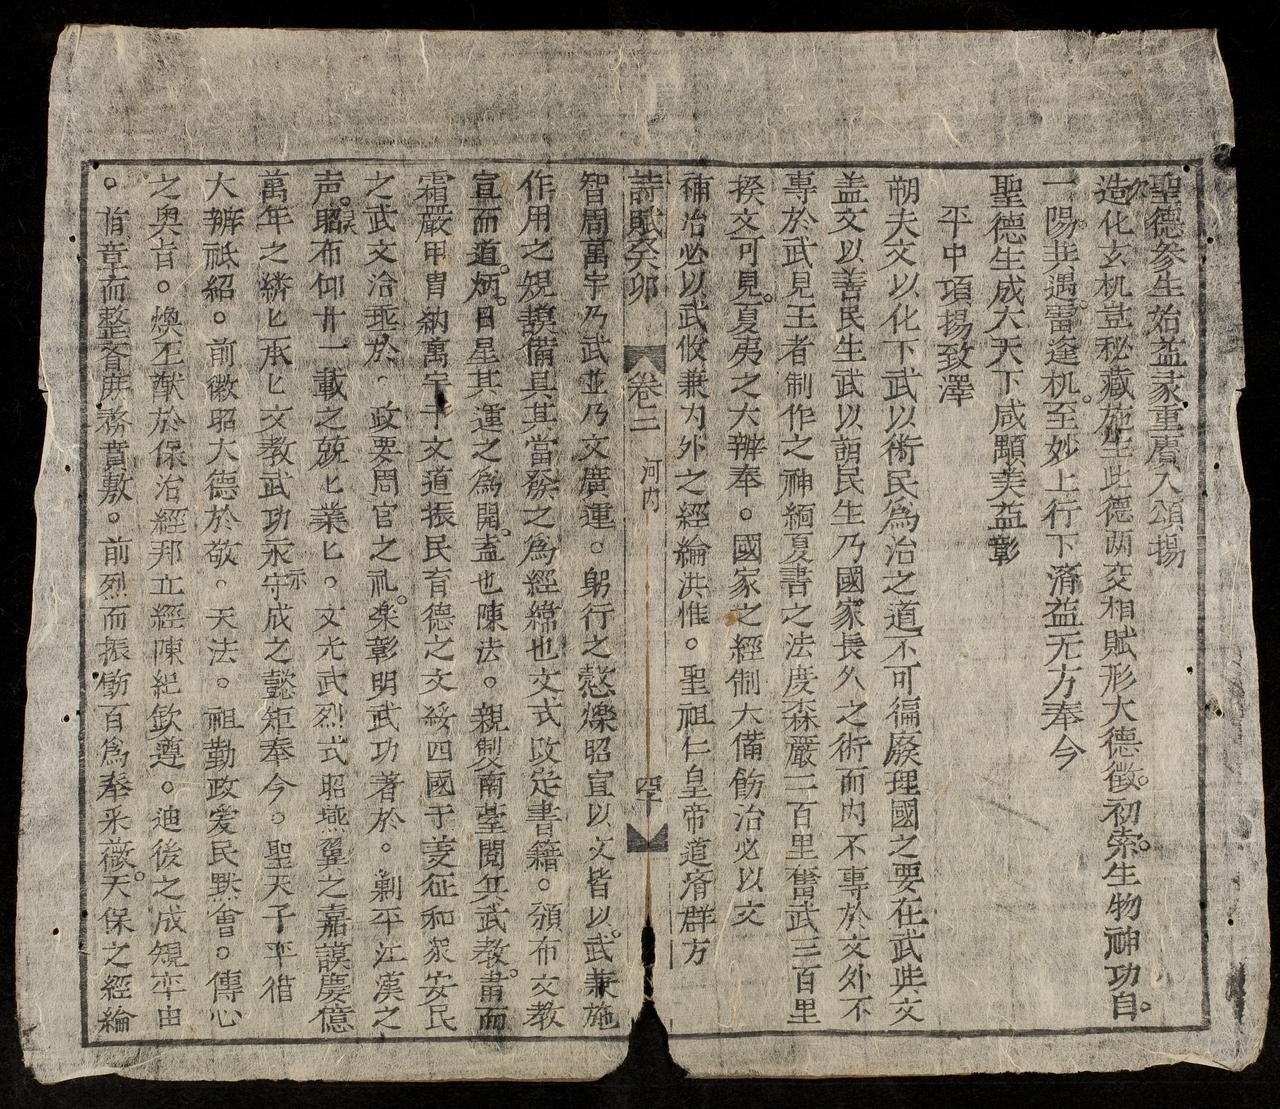 聖德參生始益彖重賡入頌揚
造化玄机豈秘藏施生此德両交相賦形大德徵初索生物神功自
一陽共遇雷逢机至妙上行下濟益无方奉今
聖德生成大天下咸顒美益彰
平中項揚致澤
朔夫文以化下武以術民為治之道不可徧廢理國之要在武與文
盖文以善民生武以詔民生乃國家長久之術而内不專於文外不
專於武見王者制作之神緬夏書之法度森嚴二百里奮武三百里
揆文可見夏夷之大辨奉。國家之經制大備飭治必以文
補治必以武攸兼内外之經綸洪惟。聖祖仁皇帝道濟群方
詩賦癸卯 卷二 河内 四十
智周萬宇乃武並乃文廣運。躬行之懿爍昭宣以文皆以武兼施
作用之規謨備具其當發之為經緯也文式改定書籍。頒布文教
宣而道炳日星其運之為開盍也陳法。親製南臺閱兵武教肅而
霜嚴甲胄納萬宇于文道振民育德之文綏四國于菱征和衆安民
之武文洽乖於。政要周官之礼楽彰明武功著於。剿平江漢之
声昭布仰廿一載之兢匕業匕。文尤武烈式昭燕翼之嘉謨慶億
萬年之繼匕承匕文教武功永守示成之懿矩奉今。聖天子平措
大辨祗紹。前徽昭大德於敬。天法。祖勤政爱民默會。傳心
之奥旨。煥丕猷於保治經邦立經陳紀欽遵。迪後之成規率由
。舊章而整脊庶務賁敷。前烈而振勵百為奉采薇天保之經綸